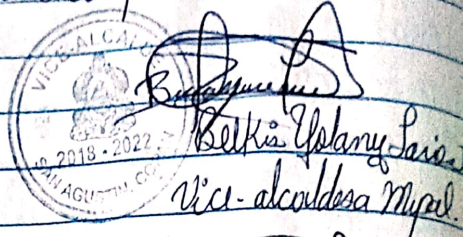 VICE-ALCALD
2018 - 2022
SAN AGUSTIN, CO
Belkis Yolany
Vice-alcaldesa Mpal.